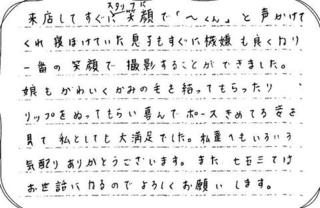 スタッフに
来店してすぐに笑顔で「〜くん」と声かけて
くれ寝ぼけていた息子もすぐに機嫌も良くなり
一番の笑顔で撮影することができました。
娘もかわいくかみの毛を結ってもらったり
リップをぬってもらい喜んでポーズきめてる姿を
見て私としても大満足でした。私達へもいろいろ
気配りありがとうございます。また七五三では
お世話になるのでよろしくお願いします。